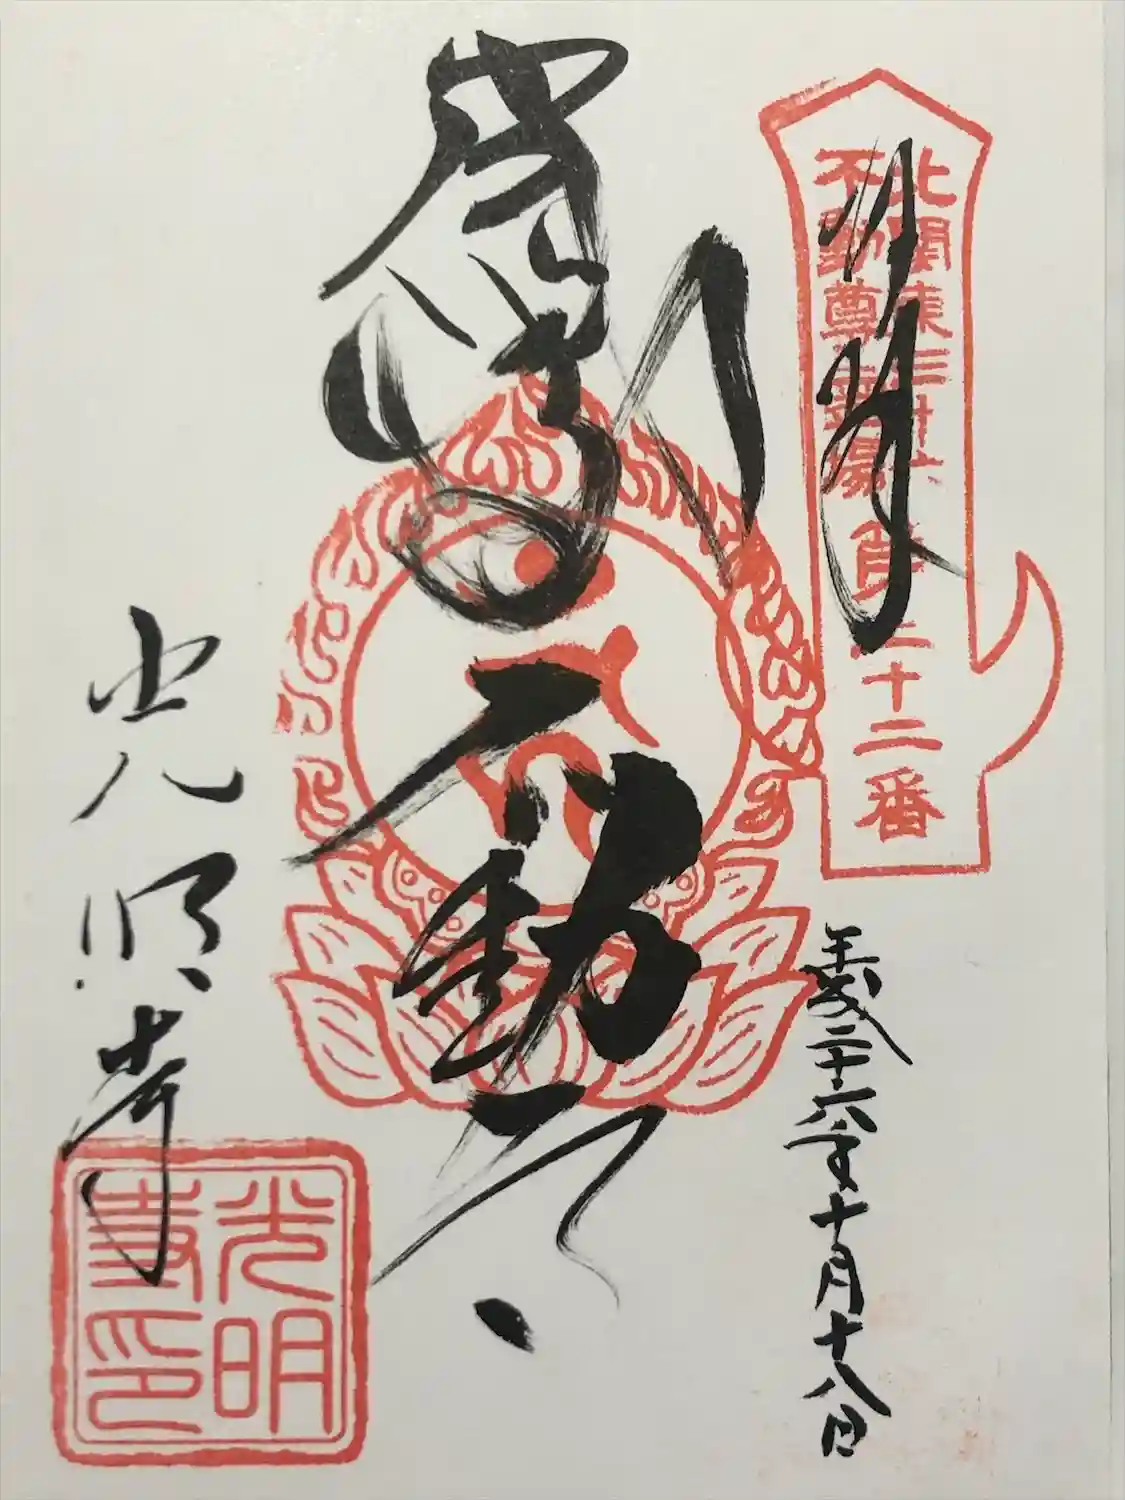 奉拝
北関東三十六
不動尊霊場
第三十二番
平成二十六年十月十八日
感得不動尊
光明寺
光明
寺印